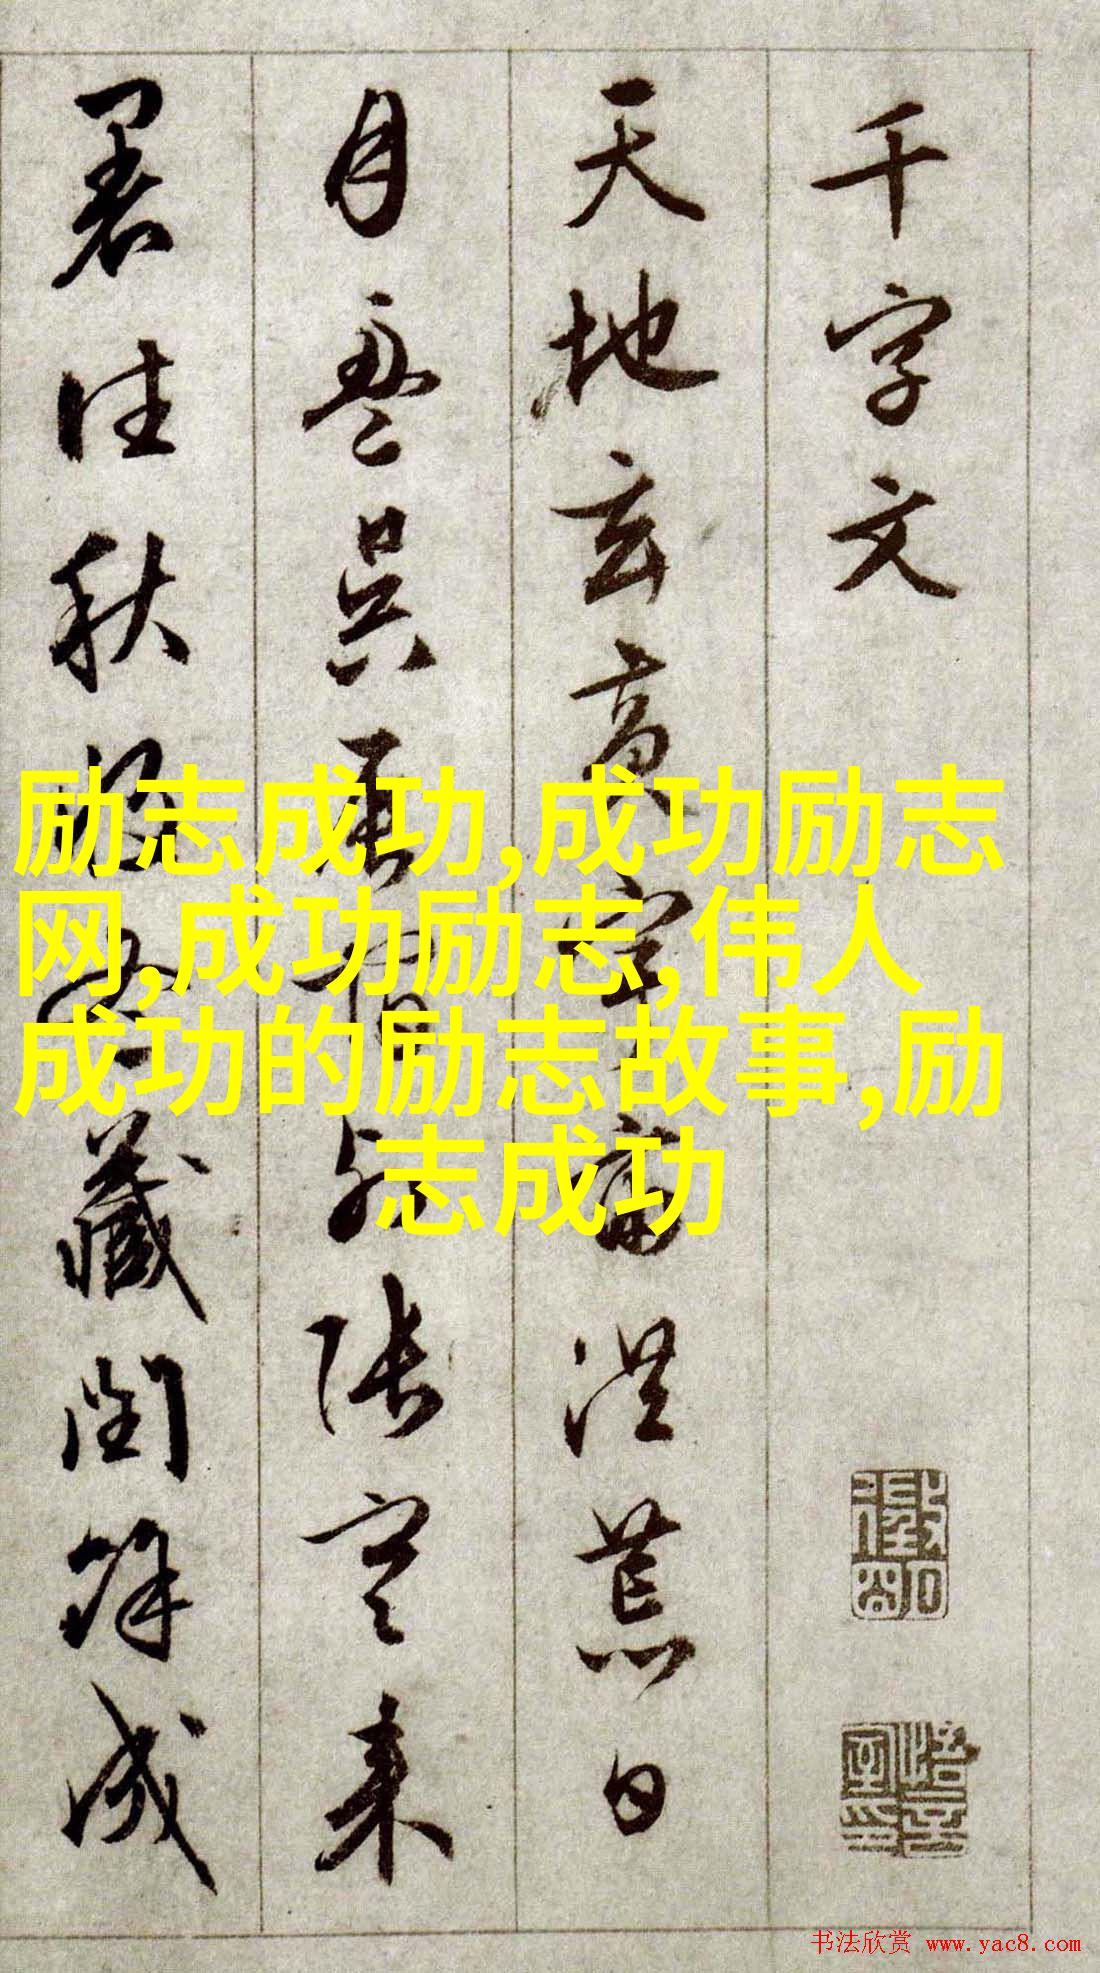 千字文
天地玄黃宇宙洪荒日
月盈昃辰宿列張寒來
暑往秋收冬藏閏餘成
励志成功,成功励志
网,成功励志,伟人
成功的励志故事,励
志成功
书法欣赏 www.yac8.com